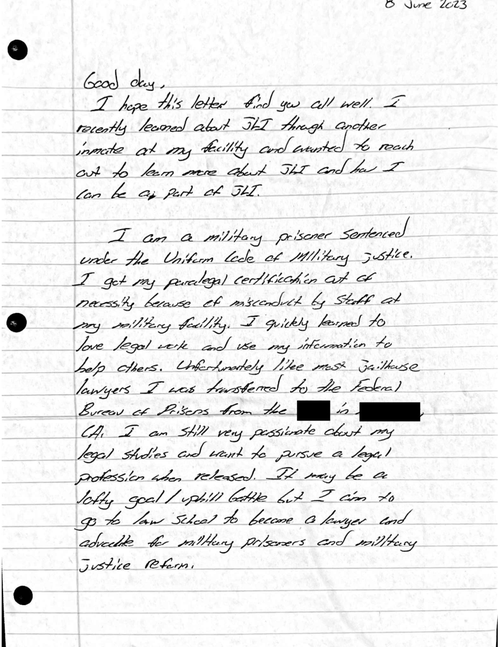 8 June 2023
Good day,
I hope this letter find you all well. I
recently learned about JLI through another
inmate at my facility and wanted to reach
out to learn more about JLI and how I
can be a part of JLI.
I am a military prisoner sentenced
under the Uniform Code of Military Justice.
I got my paralegal certification out of
necessity because of misconduct by Staff at
my military facility. I quickly learned to
love legal work and use my information to
help others. Unfortunately like most jailhouse
lawyers I was transferred to the Federal
Bureau of Prisons from the in ,
CA. I am still very passionate about my
legal studies and want to pursue a legal
profession when released. It may be a
lofty goal/uphill battle but I aim to
go to law school to become a lawyer and
advocate for military prisoners and military
justice reform.